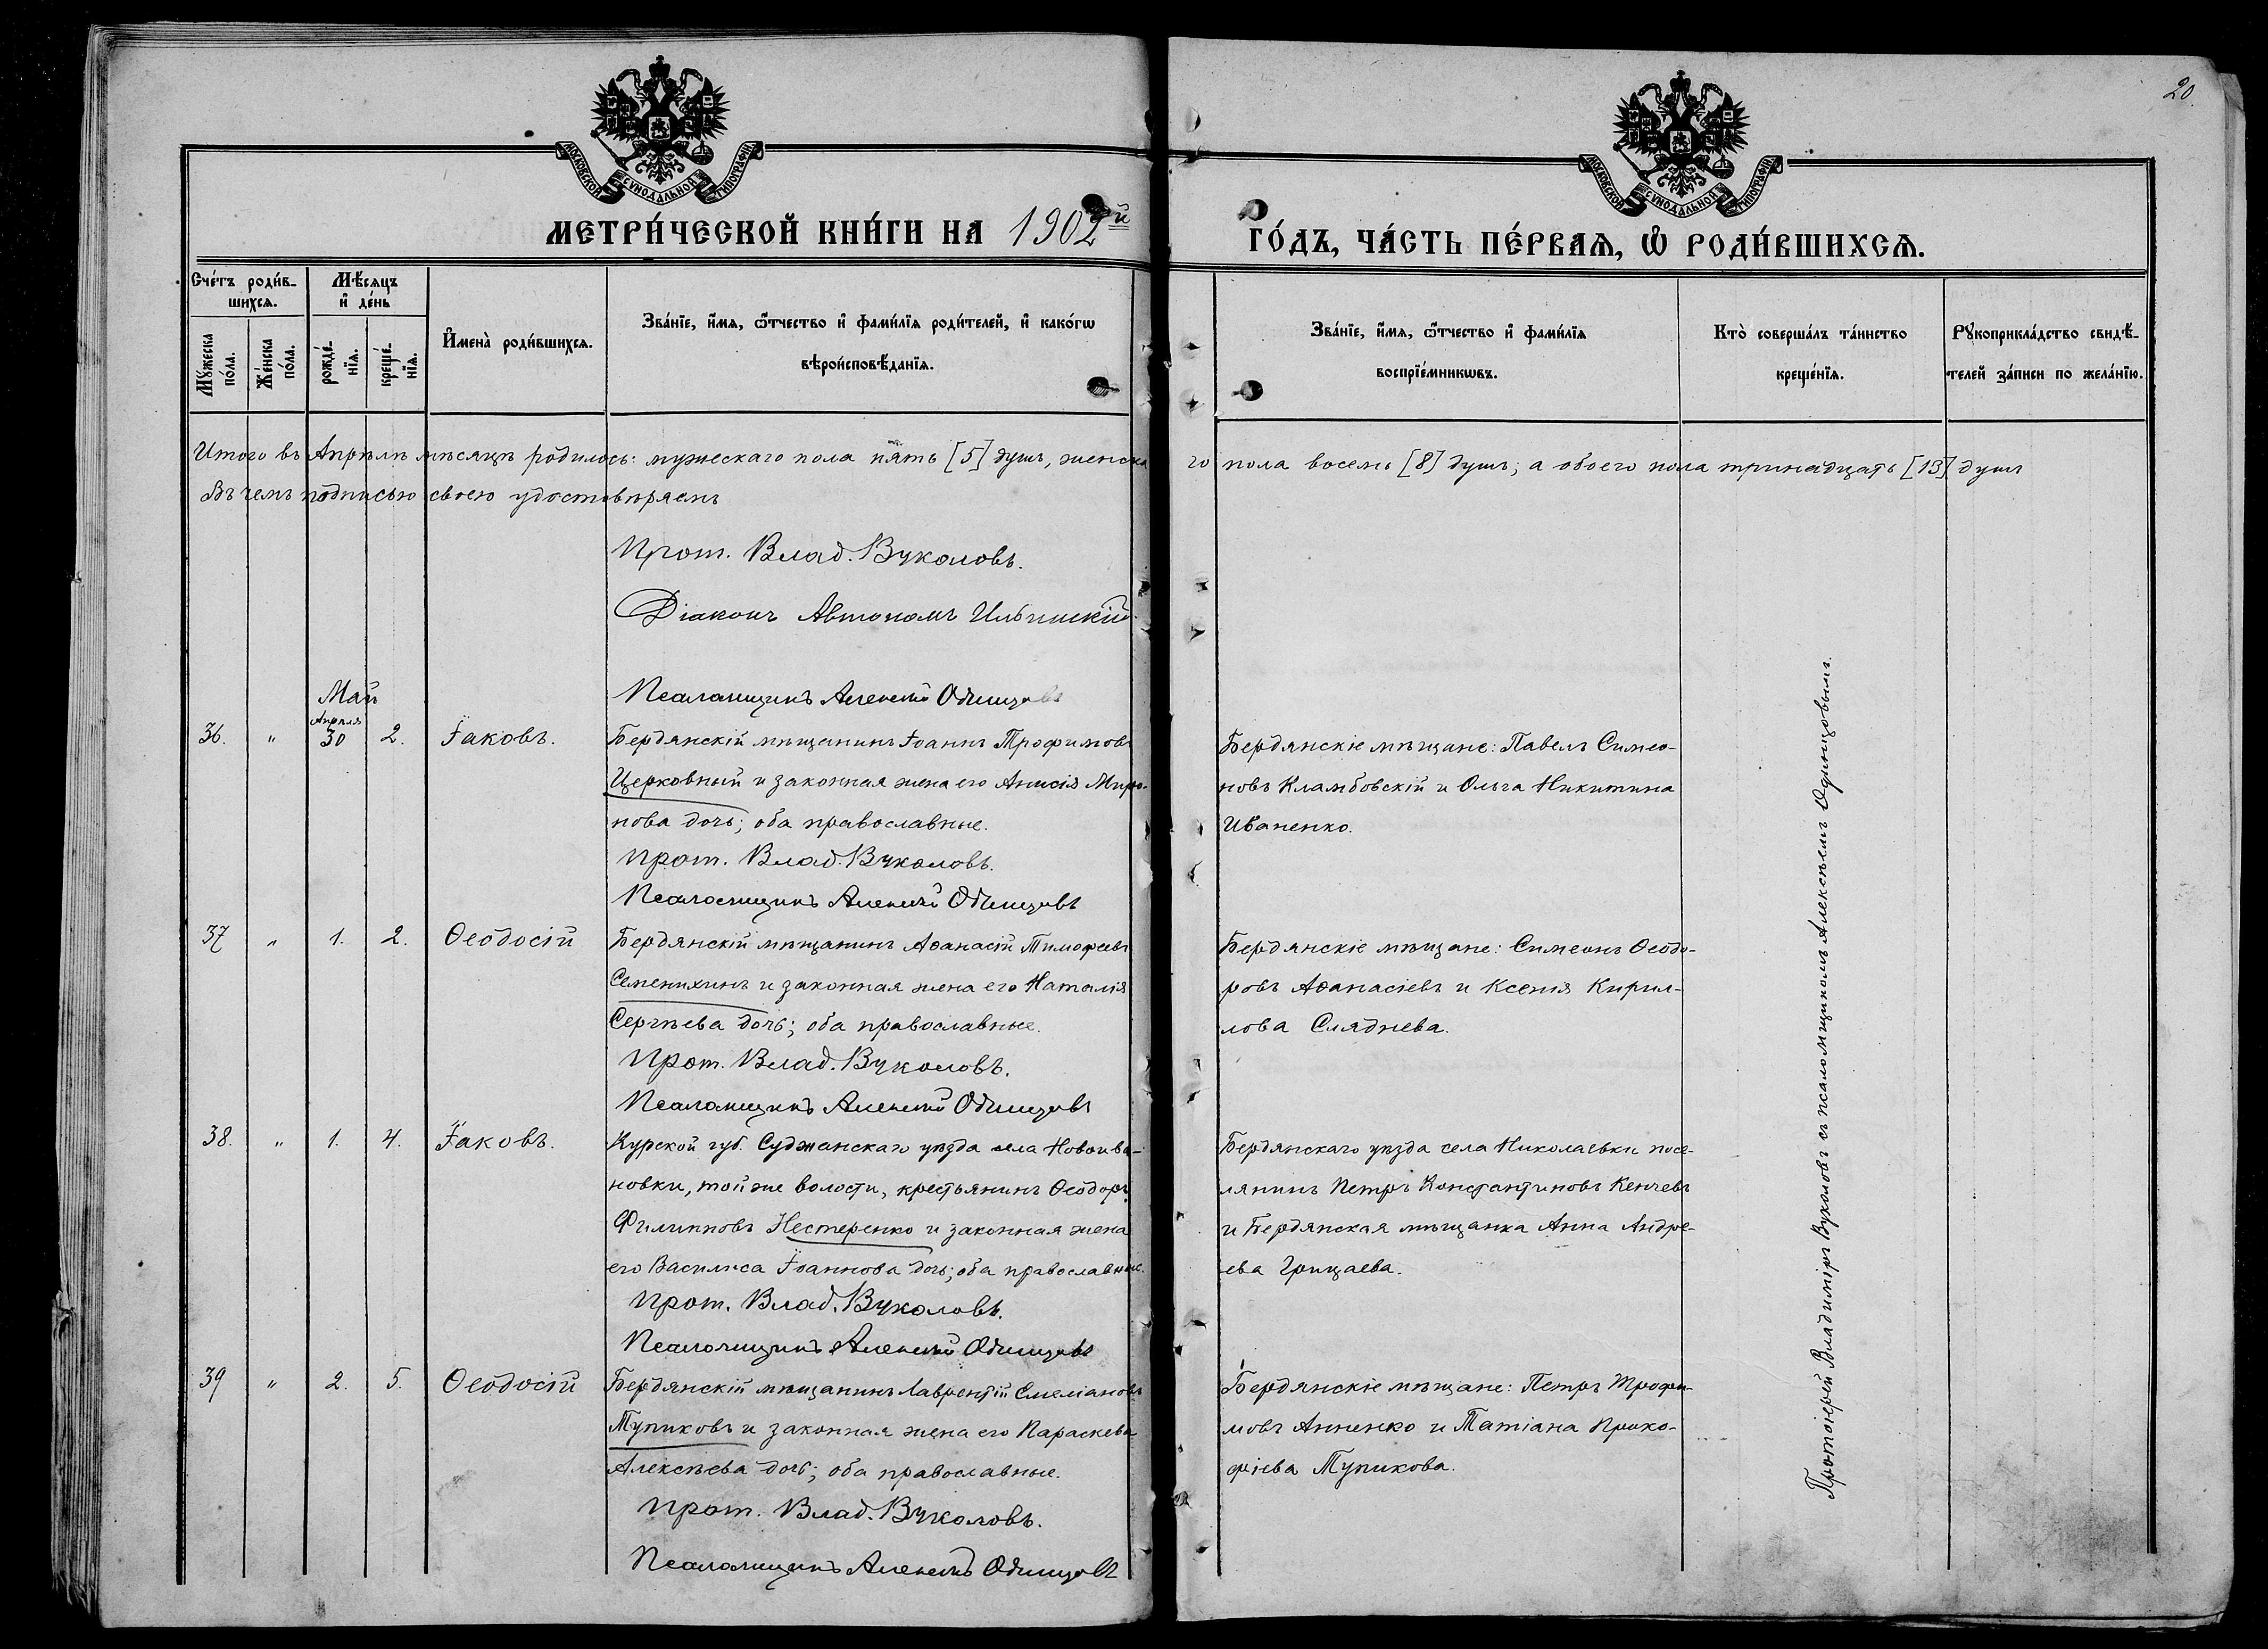 20.
МОСКОВСКОЙ СѴНОДАЛЬНОЙ ТИПОГРАФІИ
МОСКОВСКОЙ СѴНОДАЛЬНОЙ ТИПОГРАФІИ
МЕТРИ́ЧЕСКОЙ КНИ́ГИ НА 1902й ГО́ДЪ, ЧА́СТЬ ПЕ́РВАѦ, Ѡ҆ РОДИ́ВШИХСѦ.
Сче́тъ роди́в-
шихсѧ.
Мꙋ́жеска
по́ла.
Же́нска
по́ла.
Мѣ́сѧцъ
и҆ де́нь
рожде́-
нїѧ.
креще́-
нїѧ.
И҆мена̀ роди́вшихсѧ.
Зва́нїе, и҆́мѧ, ѻ҆́тчество и҆ фами́лїѧ роди́телей, и҆ како́гѡ
вѣроисповѣ́данїѧ.
Зва́нїе, и҆́мѧ, ѻ҆́тчество и҆ фами́лїѧ
воспрїе́мникѡвъ.
Кто̀ соверша́лъ та́инство
креще́нїѧ.
Рꙋкоприкла́дство свидѣ́-
телей за́писи по жела́нїю.
Итого въ Апрѣлѣ мѣсяцѣ родилось: мужескаго пола пять [5] душъ, женска го пола восемь [8] душъ; а обоего пола тринадцать [13] душъ
Въ чемъ подписью своею удостовѣряемъ
Прот. Влад. Вуколовъ.
Діаконъ Автономъ Ильинскій.
Псаломщикъ Алексѣй Одинцовъ
Май
36. " Апрѣля 30 2. Іаковъ.
Бердянскій мѣщанинъ Іоаннъ Трофимовъ
Церковный и законная жена его Анисія Миро-
нова дочь; оба православные.
Прот. Влад. Вуколовъ.
Псаломщикъ Алексѣй Одинцовъ
Бердянскіе мѣщане: Павелъ Симео-
новъ Кламбовскій и Ольга Никитина
Иваненко.
37 " 1. 2. Ѳеодосій
Бердянскій мѣщанинъ Аѳанасій Тимоѳеевъ
Семенихинъ и законная жена его Наталія
Сергѣева дочь; оба православные.
Прот. Влад. Вуколовъ.
Псаломщикъ Алексѣй Одинцовъ
Бердянскіе мѣщане: Симеонъ Ѳеодо-
ровъ Аѳанасіевъ и Ксенія Кирил-
лова Сляднева.
38. " 1. 4. Іаковъ.
Курской губ. Суджанскаго уѣзда села Новоива-
новки, той же волости, крестьянинъ Ѳеодоръ
Филипповъ Нестеренко и законная жена
его Василиса Іоаннова дочь; оба православные.
Прот. Влад. Вуколовъ.
Псаломщикъ Алексѣй Одинцовъ
Бердянскаго уѣзда села Николаевки посе-
лянинъ Петръ Константиновъ Кенчевъ
и Бердянская мѣщанка Анна Андре-
ева Грицаева.
39 " 2. 5. Ѳеодосій
Бердянскій мѣщанинъ Лаврентій Емеліановъ
Тупиковъ и законная жена его Параскева
Алексѣева дочь; оба православные.
Прот. Влад. Вуколовъ.
Псаломщикъ Алексѣй Одинцовъ
Бердянскіе мѣщане: Петръ Трофи-
мовъ Анненко и Татіана Проко-
фіева Тупикова.
Протоіерей Владиміръ Вуколовъ съ псаломщикомъ Алексѣемъ Одинцовымъ.